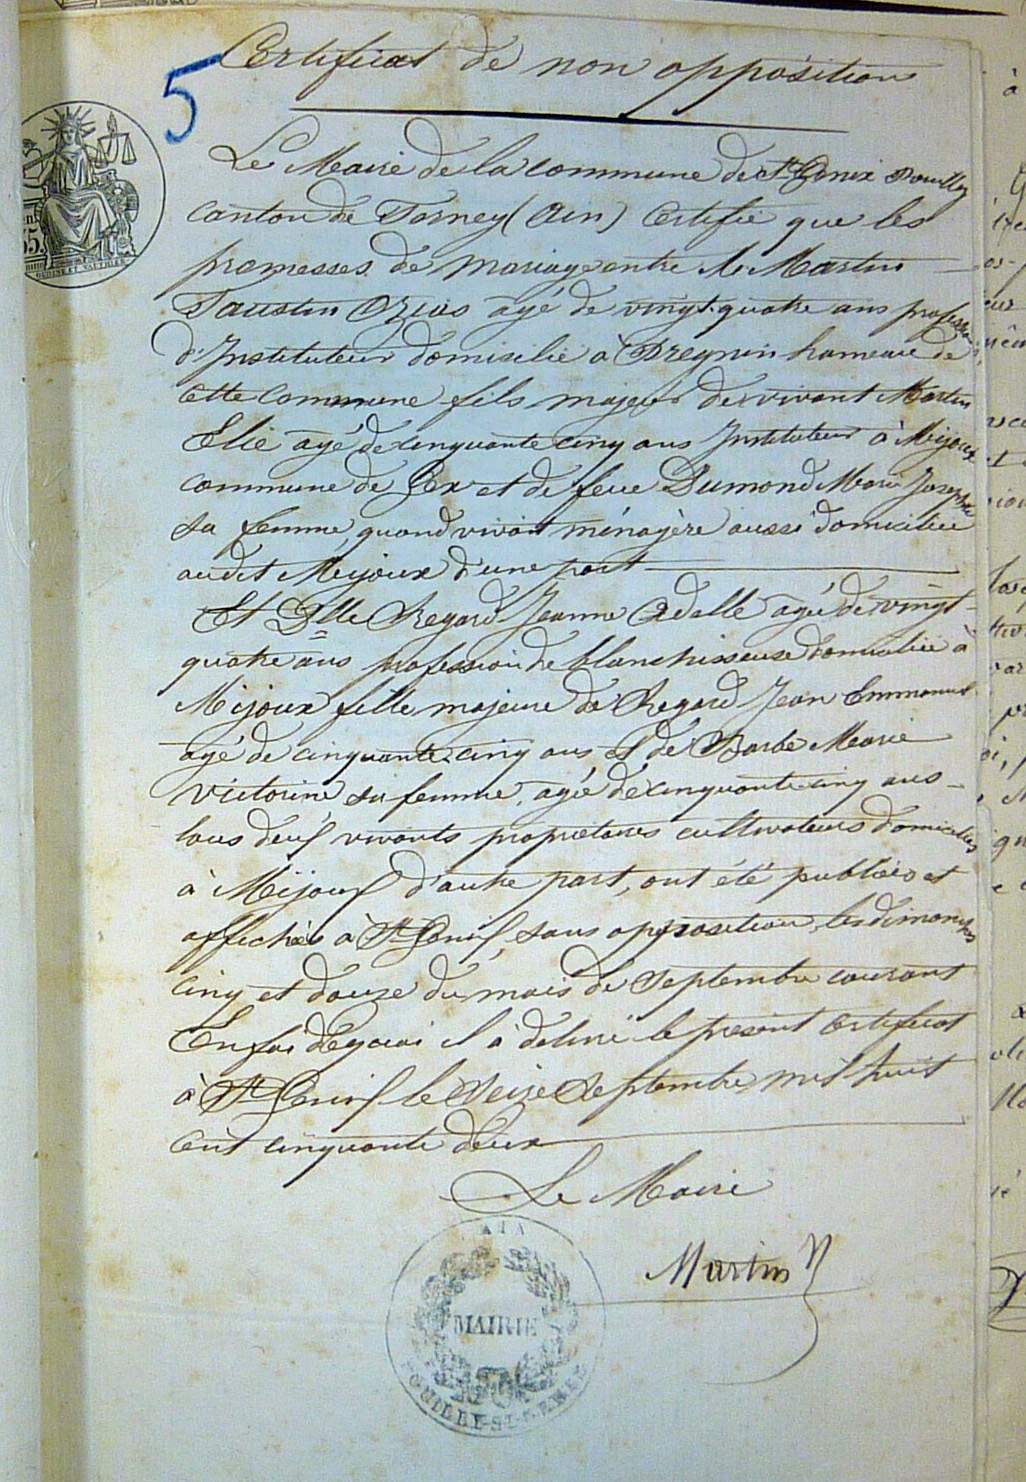 5
Certificat de non opposition
Le Maire de la commune de St Genix Pouilly
canton de Ferney (Ain) Certifie que les
promesses de mariage entre le Sr Martin
Faustin Ozias agé de vingt-quatre ans profession
d'Instituteur domicilié à Pregnin hameau de
cette commune fils majeur de vivant Martin
Elie agé de cinquante cinq ans Instituteur à Mijoux
commune de Gex et de feue Dumond Marie Josephte
sa femme, quand vivait ménagère aussi domiciliée
audit Mijoux d'une part
Et Dlle Regard Jeanne Adelle agée de vingt
quatre ans profession de blanchisseuse domiciliée à
Mijoux fille majeure de Regard Jean Emmanuel
agé de cinquante cinq ans et de Barbe Marie
Victorine sa femme, agée de cinquante cinq ans
tous deux vivants propriétaires cultivateurs domiciliés
à Mijoux d'autre part, ont été publiées et
affichées à St Genix, sans opposition, les dimanches
cinq et douze du mois de Septembre courant
En foi de quoi il a délivré le présent certificat
à St Genix le Seize Septembre mil huit
cent cinquante deux
Le Maire
Martin
AIN
MAIRIE
POUILLY-ST-GENIX